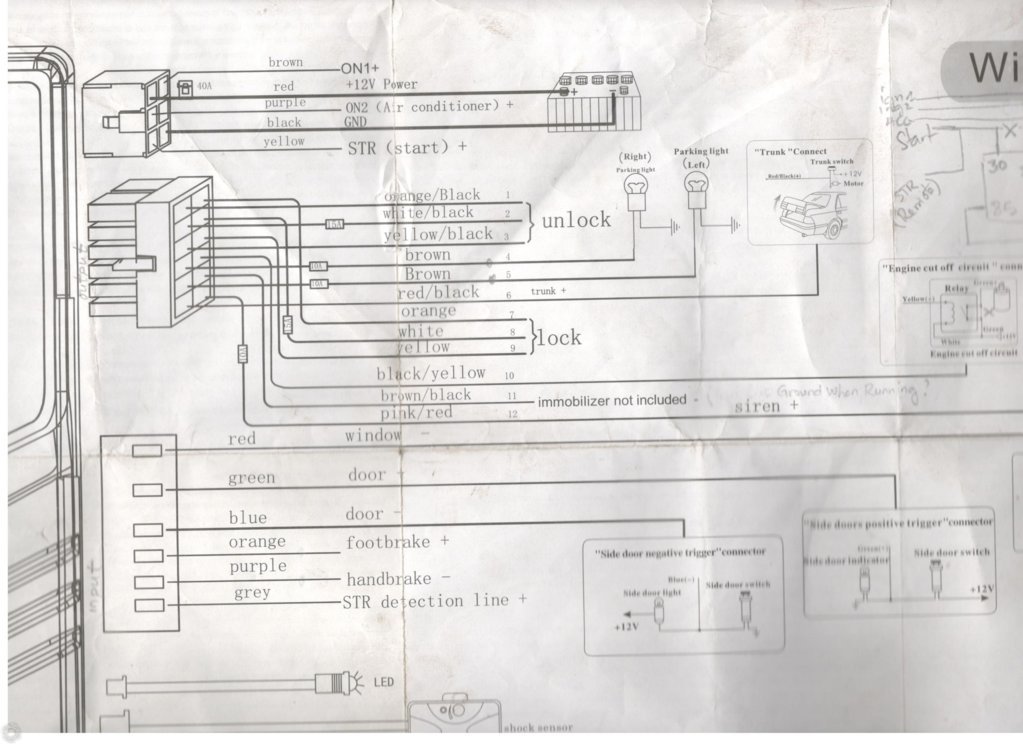 brown ON1+
40A
red +12V Power
purple ON2 (Air conditioner) +
black GND
yellow STR (start) +
+ -
Wi
ign 1
ign 2
Acc
Start
X
30
85
STR
(Remote)
output
orange/Black 1
white/black 2
15A
yellow/black 3
unlock
brown 4
10A
Brown 5
10A
red/black 6 trunk +
orange 7
white 8
15A
yellow 9
lock
10A
black/yellow 10
brown/black 11 immobilizer not included -
pink/red 12 siren +
Ground When Running?
(Right)
Parking light
Parking light
(Left)
"Trunk "Connect
Trunk switch
Red/Black(+)
+12V
Motor
"Engine cut off circuit " conn
Relay
Green
Yellow(-)
Green
+12V
White
Engine cut off circuit
input
red window -
green door +
blue door -
orange footbrake +
purple handbrake -
grey STR detection line +
"Side door negative trigger"connector
Blue(-)
Side door light
Side door switch
+12V
"Side doors positive trigger"connector
Green(+)
Side door indicator
Side door switch
+12V
LED
shock sensor